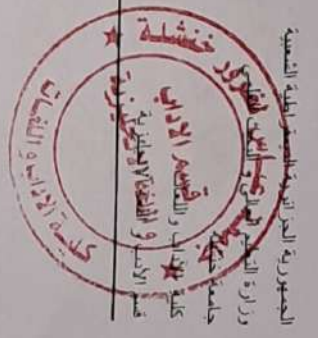 الجمهورية الجزائرية الديمقراطية الشعبية
وزارة التعليم العالي و البحث العلمي
جامعة خنشلة
كلية الآداب و اللغات
قسم الأدب و اللغة الإنجليزية
جامعة عباس لغرور خنشلة
كلية الآداب و اللغات
قسم الآداب
و اللغة الإنجليزية